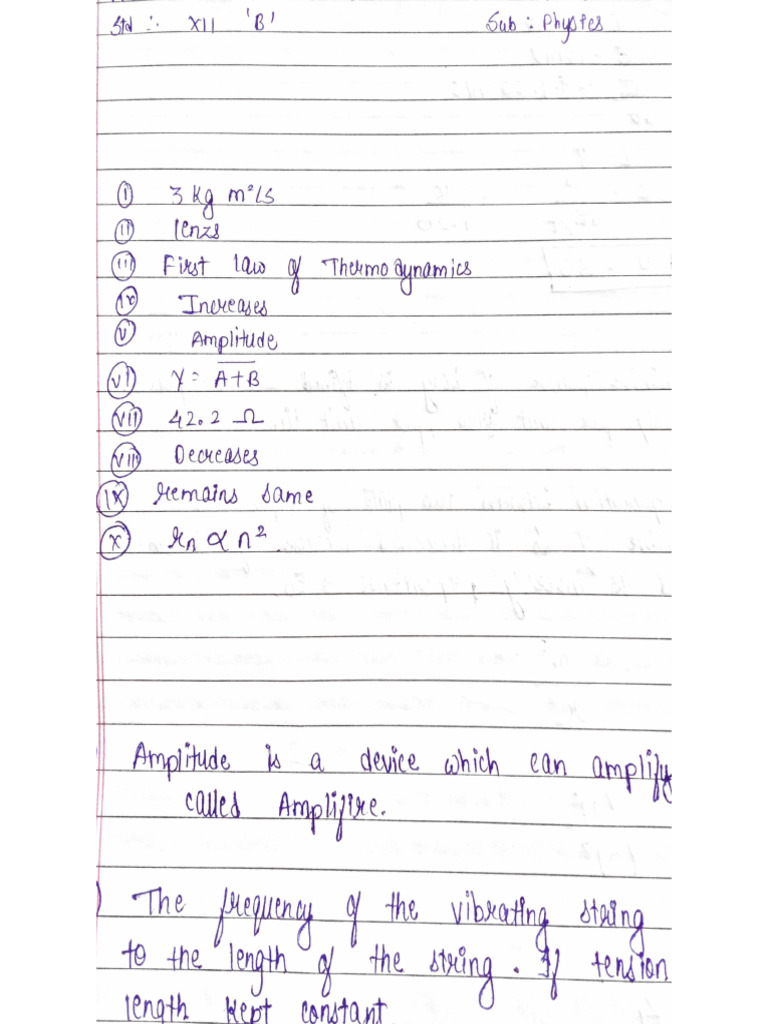 Std :- XII 'B' Sub : Physics
(i) 3 kg m²/s
(ii) lenzs
(iii) First law of Thermodynamics
(iv) Increases
(v) Amplitude
(vi) Y = \overline{A+B}
(vii) 42.2 Ω
(viii) Decreases
(ix) remains same
(x) rₙ ∝ n².
Amplitude is a device which can amplify
called Amplifire.
) The frequency of the vibrating string
to the length of the string. If tension
length kept constant